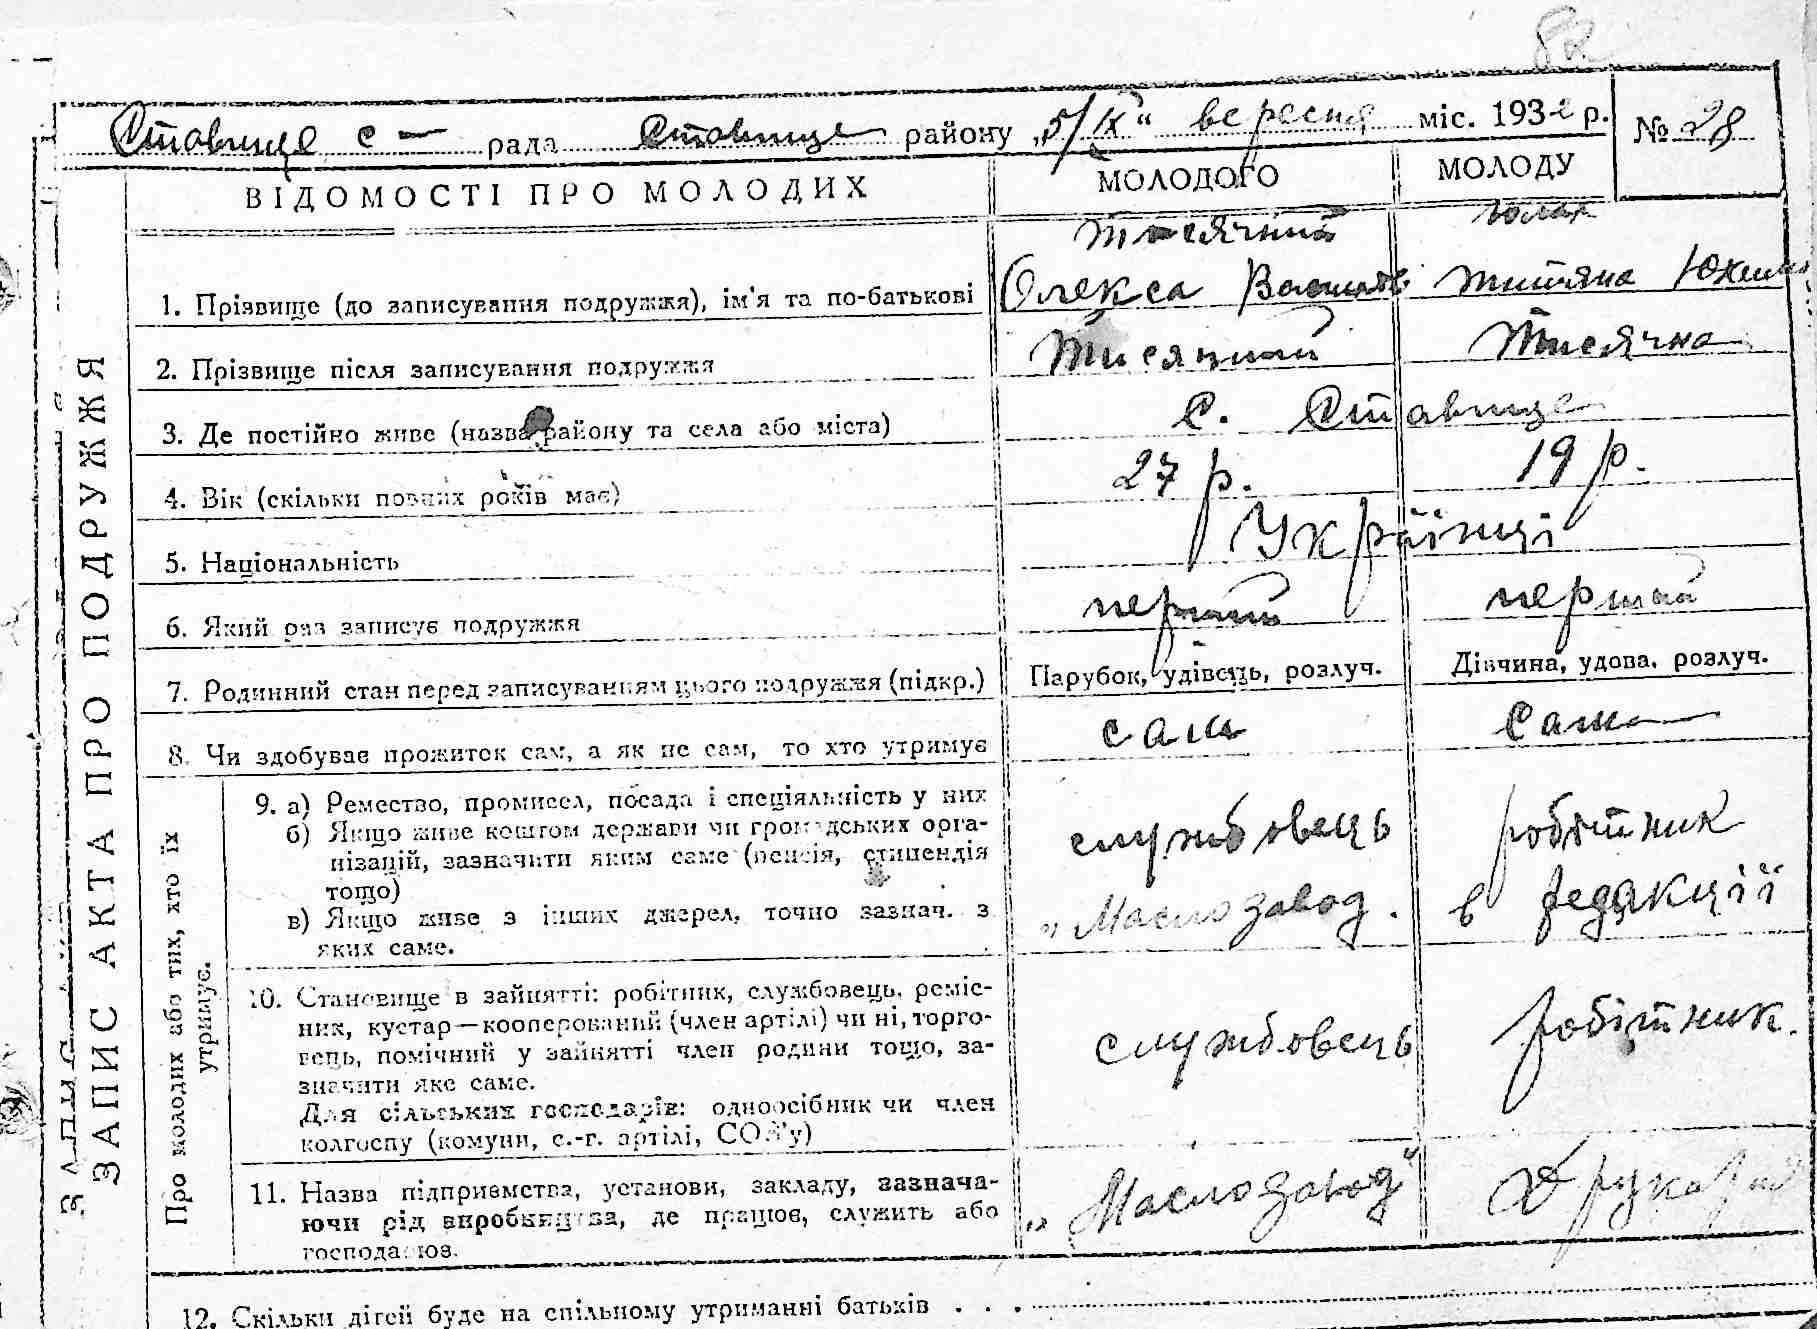 82
Ставище с — рада Ставище району „5/IX“ вересня міс. 1932 р. № 28
ВІДОМОСТІ ПРО МОЛОДИХ МОЛОДОГО МОЛОДУ
Тисячний
1. Прізвище (до записування подружжя), ім'я та по-батькові Олекса Титяна
2. Прізвище після записування подружжя Тисячний Тисячна
3. Де постійно живе (назва району та села або міста) С. Ставище
4. Вік (скільки повних років має) 27 р. 19 р.
5. Національність Українці
6. Який раз записує подружжя перший перший
7. Родинний стан перед записуванням цього подружжя (підкр.) Парубок, удівець, розлуч. Дівчина, удова, розлуч.
8. Чи здобуває прожиток сам, а як не сам, то хто утримує сам сама
ЗАПИС АКТА ПРО ПОДРУЖЖЯ
Про молодих або тих, хто їх утримує.
9. а) Ремество, промисел, посада і спеціяльність у них
б) Якщо живе коштом держави чи громадських орга-
нізацій, зазначити яким саме (пенсія, стипендія
тощо)
в) Якщо живе з інших джерел, точно зазнач. з
яких саме.
службовець
„Маслозавод.
робітник
в редакції
10. Становище в зайнятті: робітник, службовець, реміс-
ник, кустар—кооперований (член артілі) чи ні, торго-
вець, помічний у зайнятті член родини тощо, за-
значити яке саме.
Для сільських господарів: одноосібник чи член
колгоспу (комуни, с.-г. артілі, СОЗ'у)
службовець робітник.
11. Назва підприємства, установи, закладу, зазнача-
ючи рід виробництва, де працює, служить або
господарює.
„Маслозавод“
12. Скільки дітей буде на спільному утриманні батьків . . .